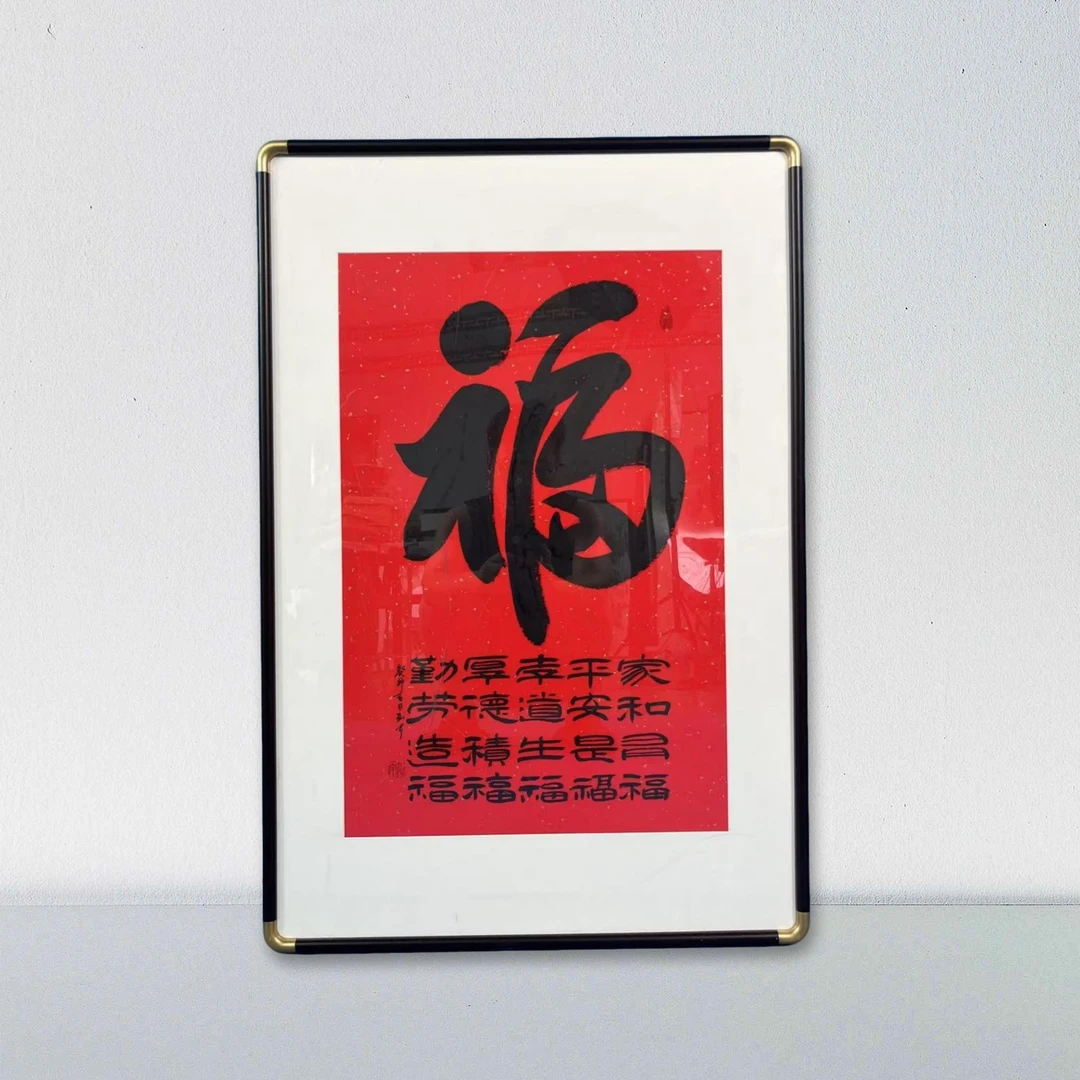 福
家和有福
平安是福
孝道生福
厚德積福
勤劳造福